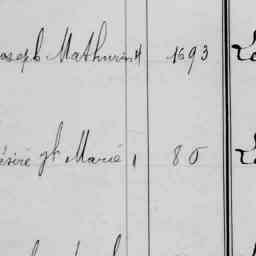 oseph Mathurin 4 1693
ésiré Jh Marie 1 80